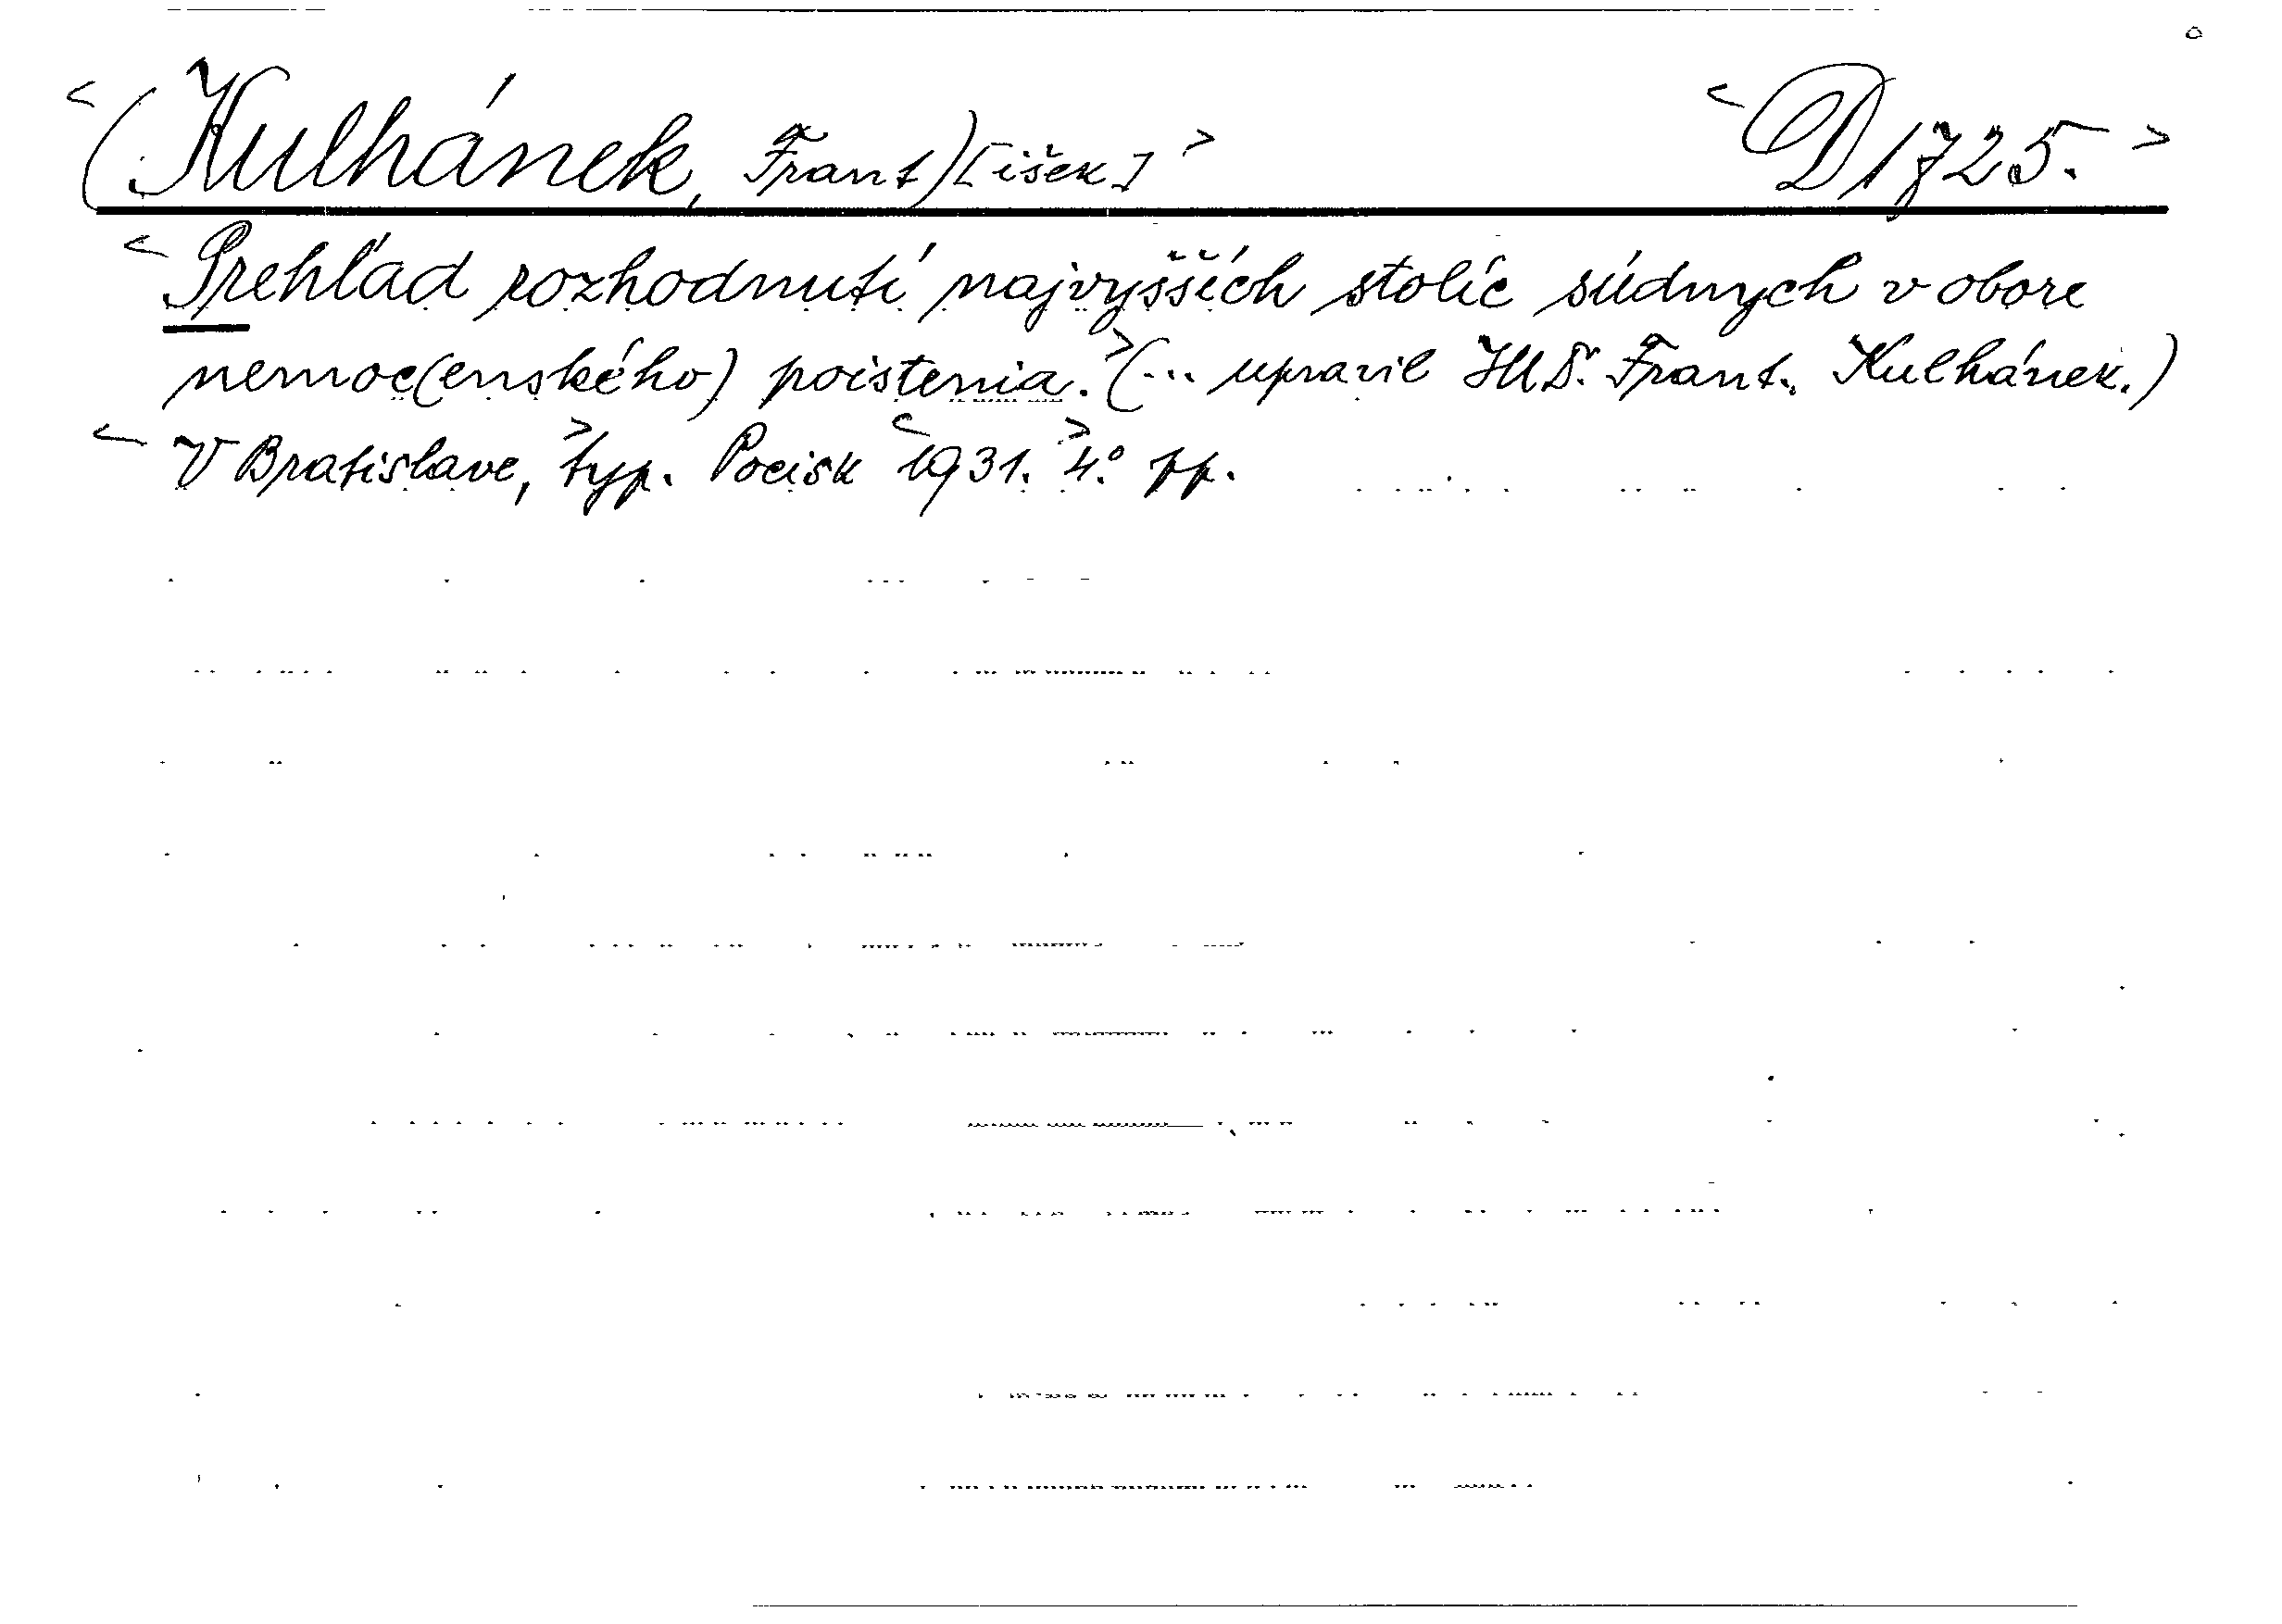 <(Kulhánek, Frant)[išek]> <D 1725.>
<Prehľad rozhodnutí najvyšších stolíc súdnych v obore
nemoc(enského) poistenia.>(... upravil JUDr. Frant. Kulhánek.)
<V Bratislave,> typ. Pocisk <1931.> 4.° pp.